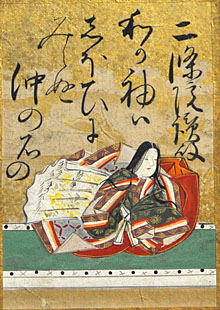 二條院讃岐
和か袖ハ
志ほひに
みえぬ
沖の石の